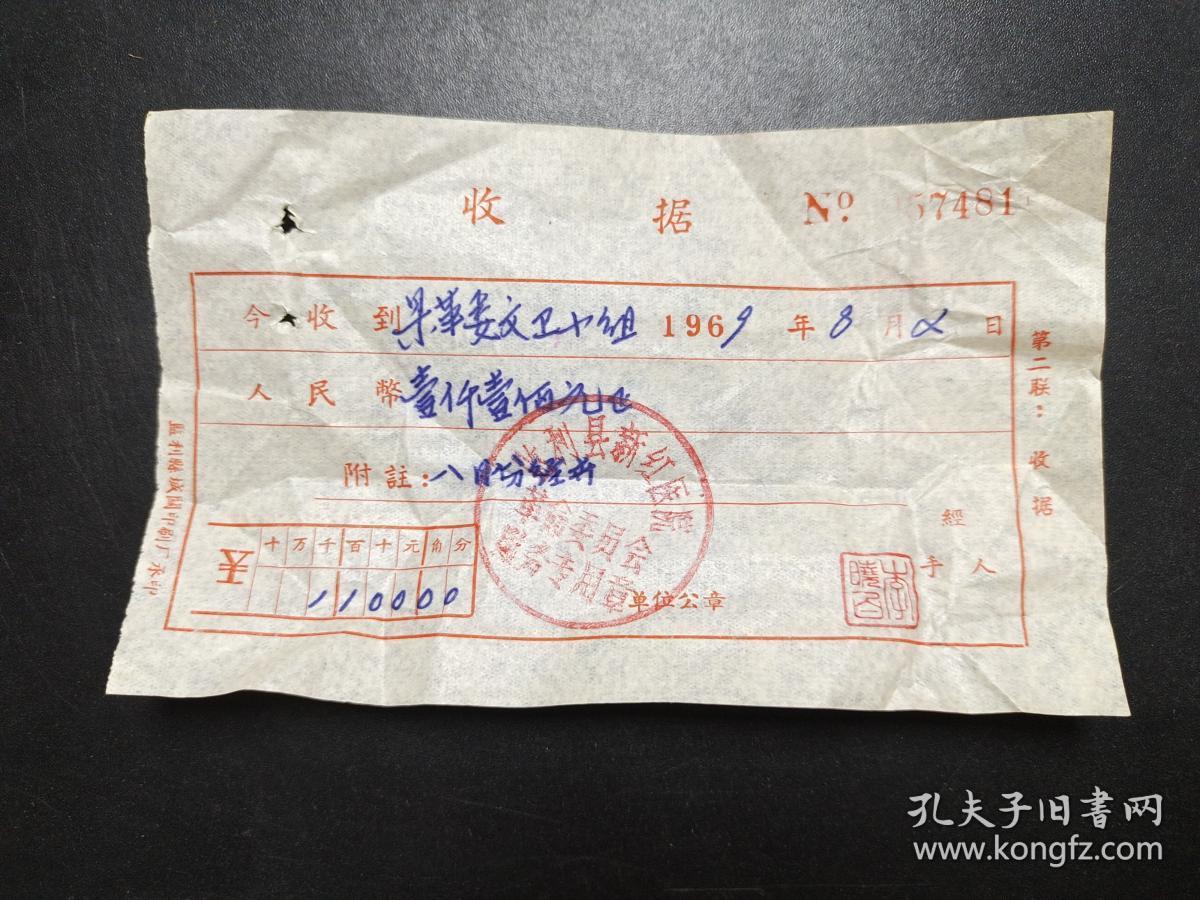 收 据 No. 57481
今收到 县革委文卫小组 1969年8月 日
人民幣 壹仟壹佰元
附註：八月份经
十万千百十元角分
110000
监利县新红医院
革命委员会
财务专用章
单位公章
經手人
李
曉
第二联：收据
監利縣城関印刷厂承印
孔夫子旧書网
www.kongfz.com